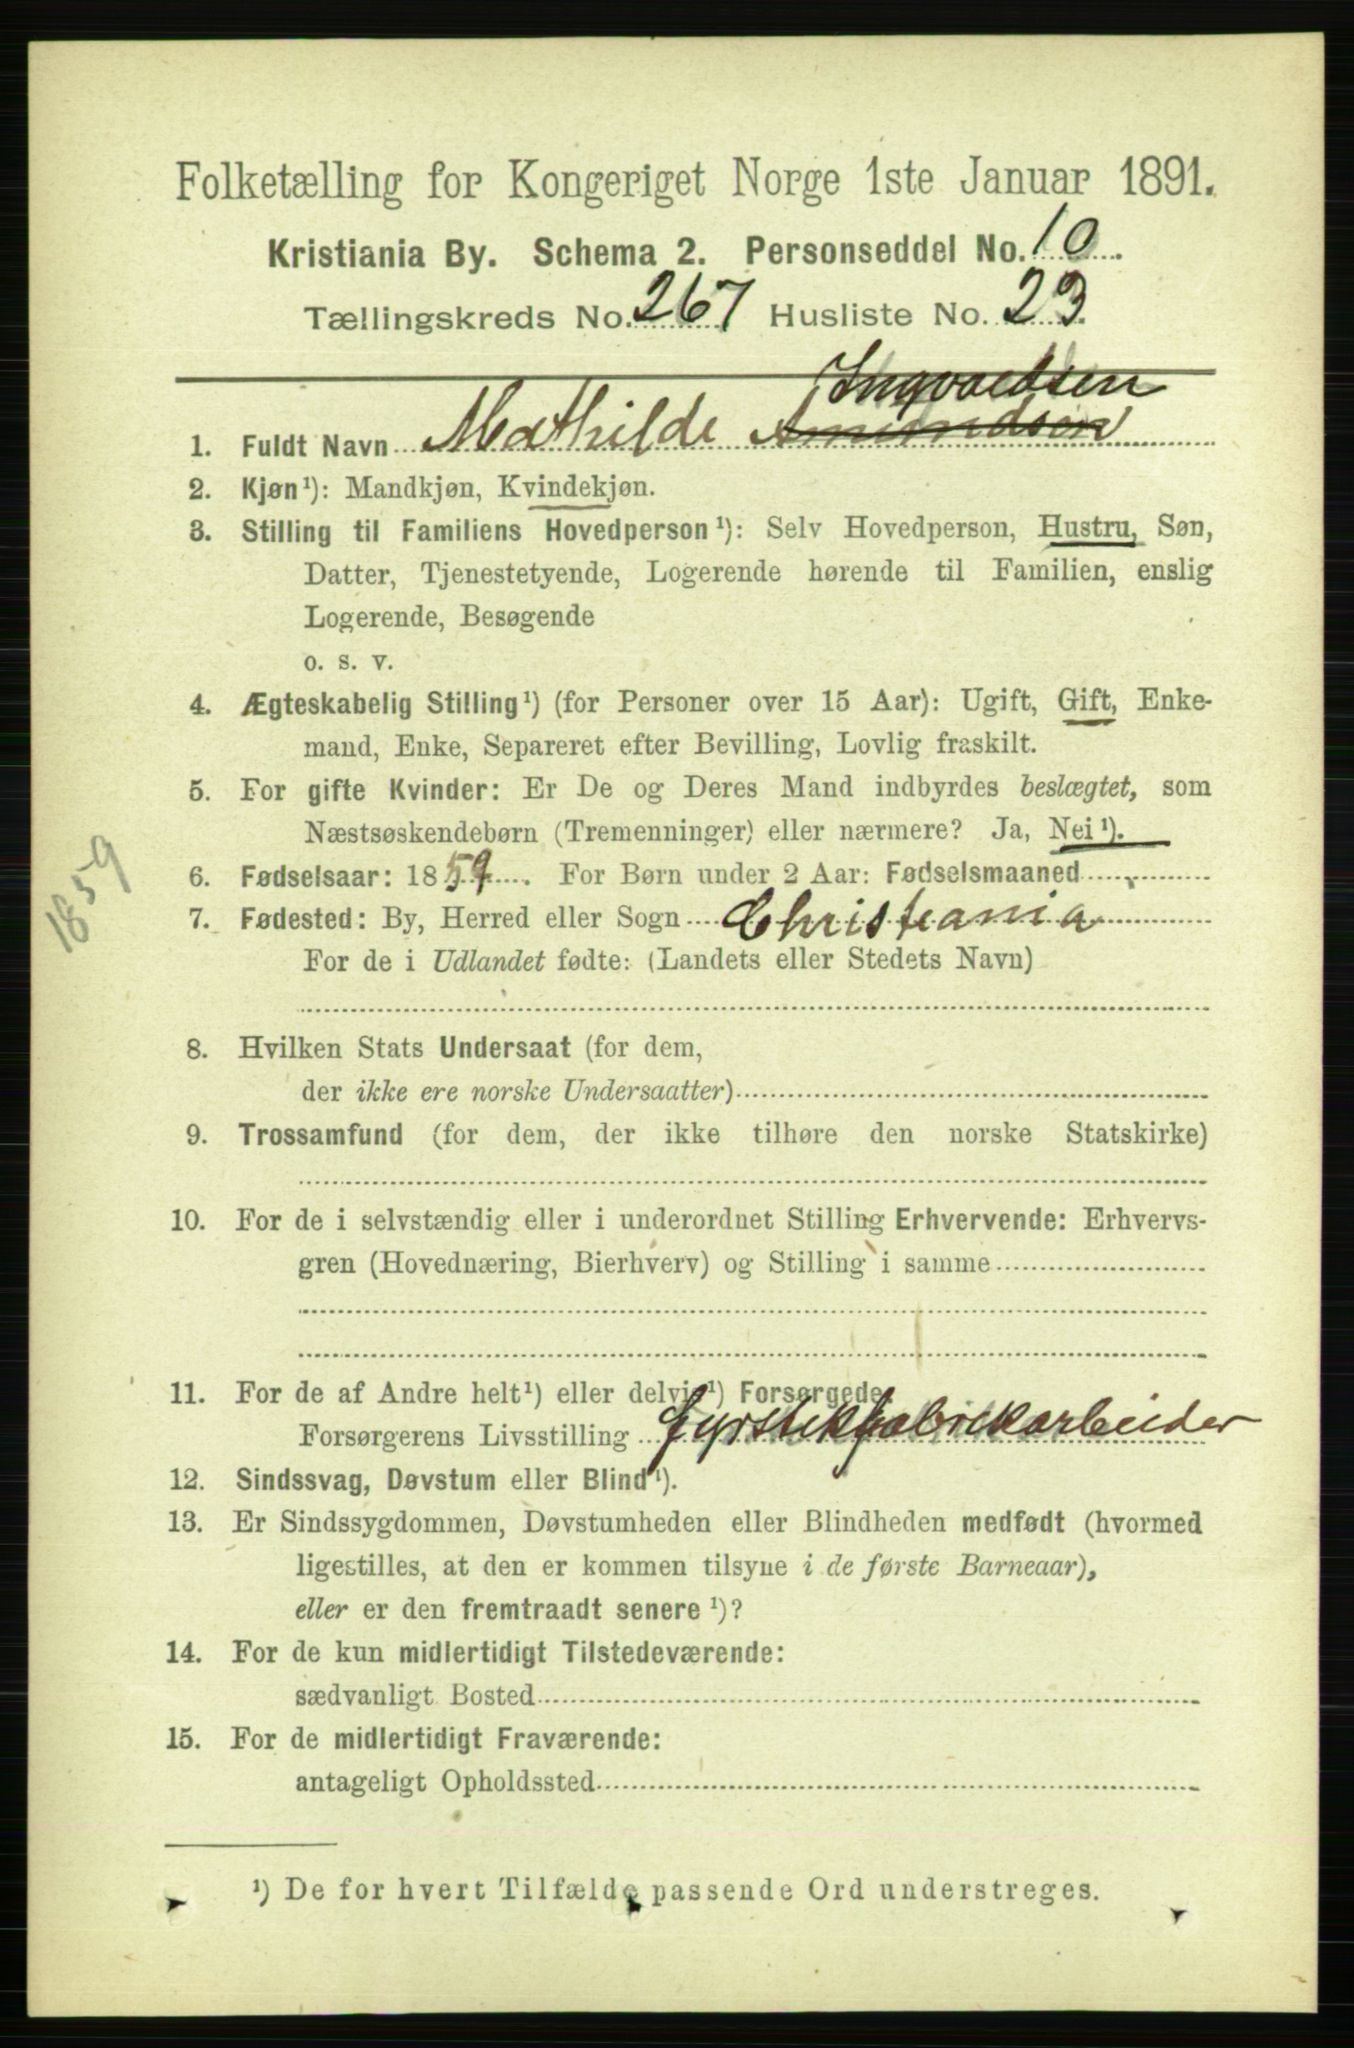 Folketælling for Kongeriget Norge 1ste Januar 1891.
Kristiania By. Schema 2. Personseddel No. 10.
Tællingskreds No. 267 Husliste No. 23.
Ingvaldsen
1. Fuldt Navn Mathilde Amundsen
2. Kjøn¹): Mandkjøn, Kvindekjøn.
3. Stilling til Familiens Hovedperson¹): Selv Hovedperson, Hustru, Søn,
Datter, Tjenestetyende, Logerende hørende til Familien, enslig
Logerende, Besøgende
o. s. v.
4. Ægteskabelig Stilling¹) (for Personer over 15 Aar): Ugift, Gift, Enke-
mand, Enke, Separeret efter Bevilling, Lovlig fraskilt.
5. For gifte Kvinder: Er De og Deres Mand indbyrdes beslægtet, som
Næstsøskendebørn (Tremenninger) eller nærmere? Ja, Nei¹).
1859
6. Fødselsaar: 1859. For Børn under 2 Aar: Fødselsmaaned
7. Fødested: By, Herred eller Sogn Christiania
For de i Udlandet fødte: (Landets eller Stedets Navn)
8. Hvilken Stats Undersaat (for dem,
der ikke ere norske Undersaatter)
9. Trossamfund (for dem, der ikke tilhøre den norske Statskirke)
10. For de i selvstændig eller i underordnet Stilling Erhvervende: Erhvervs-
gren (Hovednæring, Bierhverv) og Stilling i samme
11. For de af Andre helt¹) eller delvis¹) Forsørgede,
Forsørgerens Livsstilling Fyrstikfabrickarbeider
12. Sindssvag, Døvstum eller Blind¹).
13. Er Sindssygdommen, Døvstumheden eller Blindheden medfødt (hvormed
ligestilles, at den er kommen tilsyne i de første Barneaar),
eller er den fremtraadt senere¹)?
14. For de kun midlertidigt Tilstedeværende:
sædvanligt Bosted
15. For de midlertidigt Fraværende:
antageligt Opholdssted
¹) De for hvert Tilfælde passende Ord understreges.